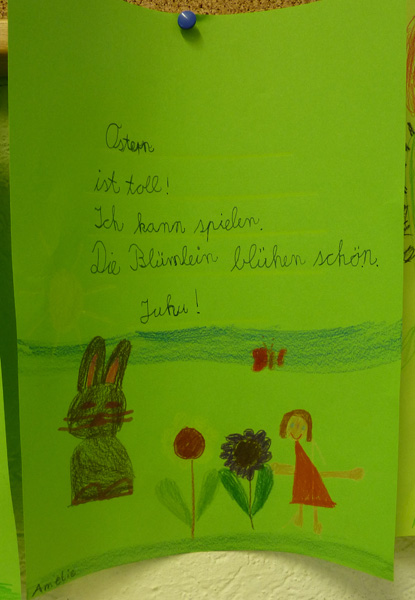 Ostern
ist toll!
Ich kann spielen.
Die Blümlein blühen schön.
Juhu!
Amelie